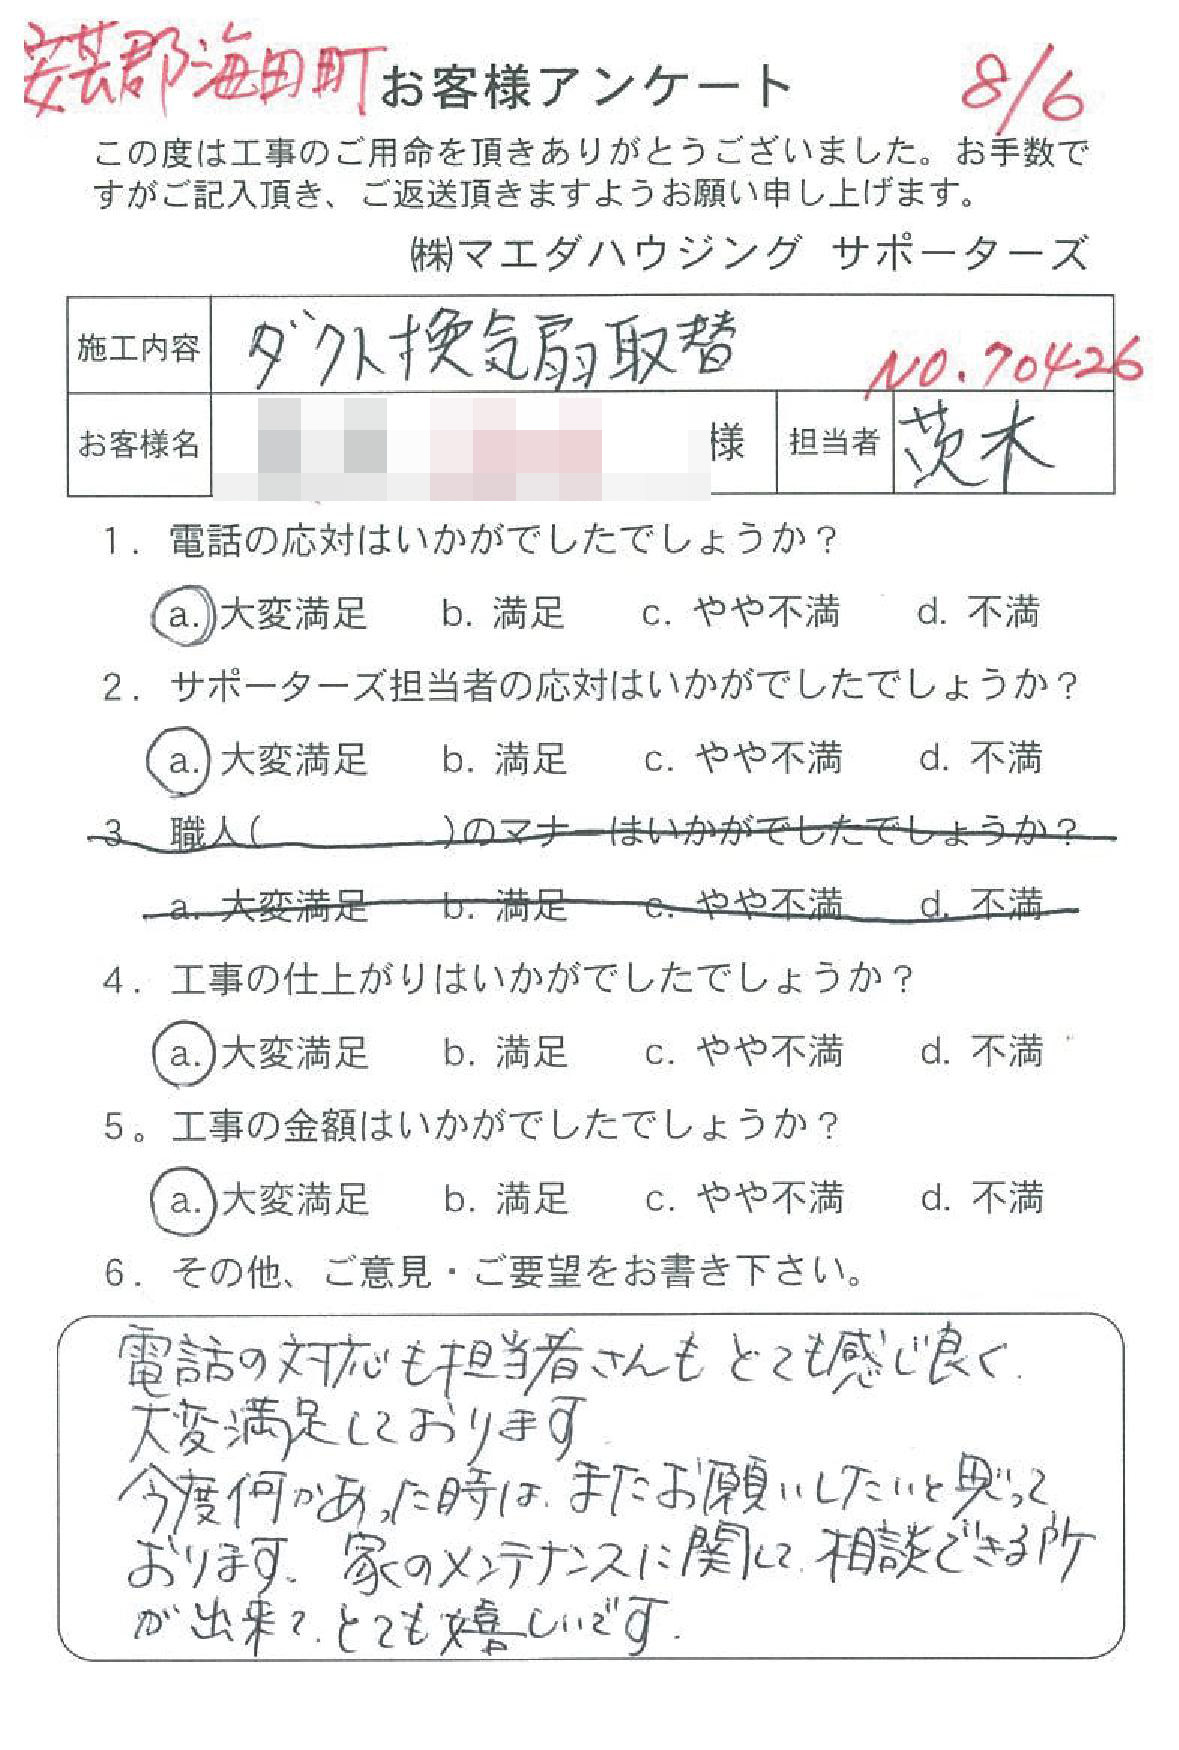 安芸郡海田町 お客様アンケート 8/6
この度は工事のご用命を頂きありがとうございました。お手数で
すがご記入頂き、ご返送頂きますようお願い申し上げます。
㈱マエダハウジング サポーターズ
施工内容 ダクト換気扇取替 NO.70426
お客様名 様 担当者 茨木
1. 電話の応対はいかがでしたでしょうか？
a. 大変満足 b. 満足 c. やや不満 d. 不満
2. サポーターズ担当者の応対はいかがでしたでしょうか？
a. 大変満足 b. 満足 c. やや不満 d. 不満
3 職人( )のマナーはいかがでしたでしょうか？
a. 大変満足 b. 満足 c. やや不満 d. 不満
4. 工事の仕上がりはいかがでしたでしょうか？
a. 大変満足 b. 満足 c. やや不満 d. 不満
5。工事の金額はいかがでしたでしょうか？
a. 大変満足 b. 満足 c. やや不満 d. 不満
6. その他、ご意見・ご要望をお書き下さい。
電話の対応も担当者さんもとても感じ良く、
大変満足しております
今度何かあった時は、またお願いしたいと思って
おります。家のメンテナンスに関して、相談できる所
が出来て、とても嬉しいです。